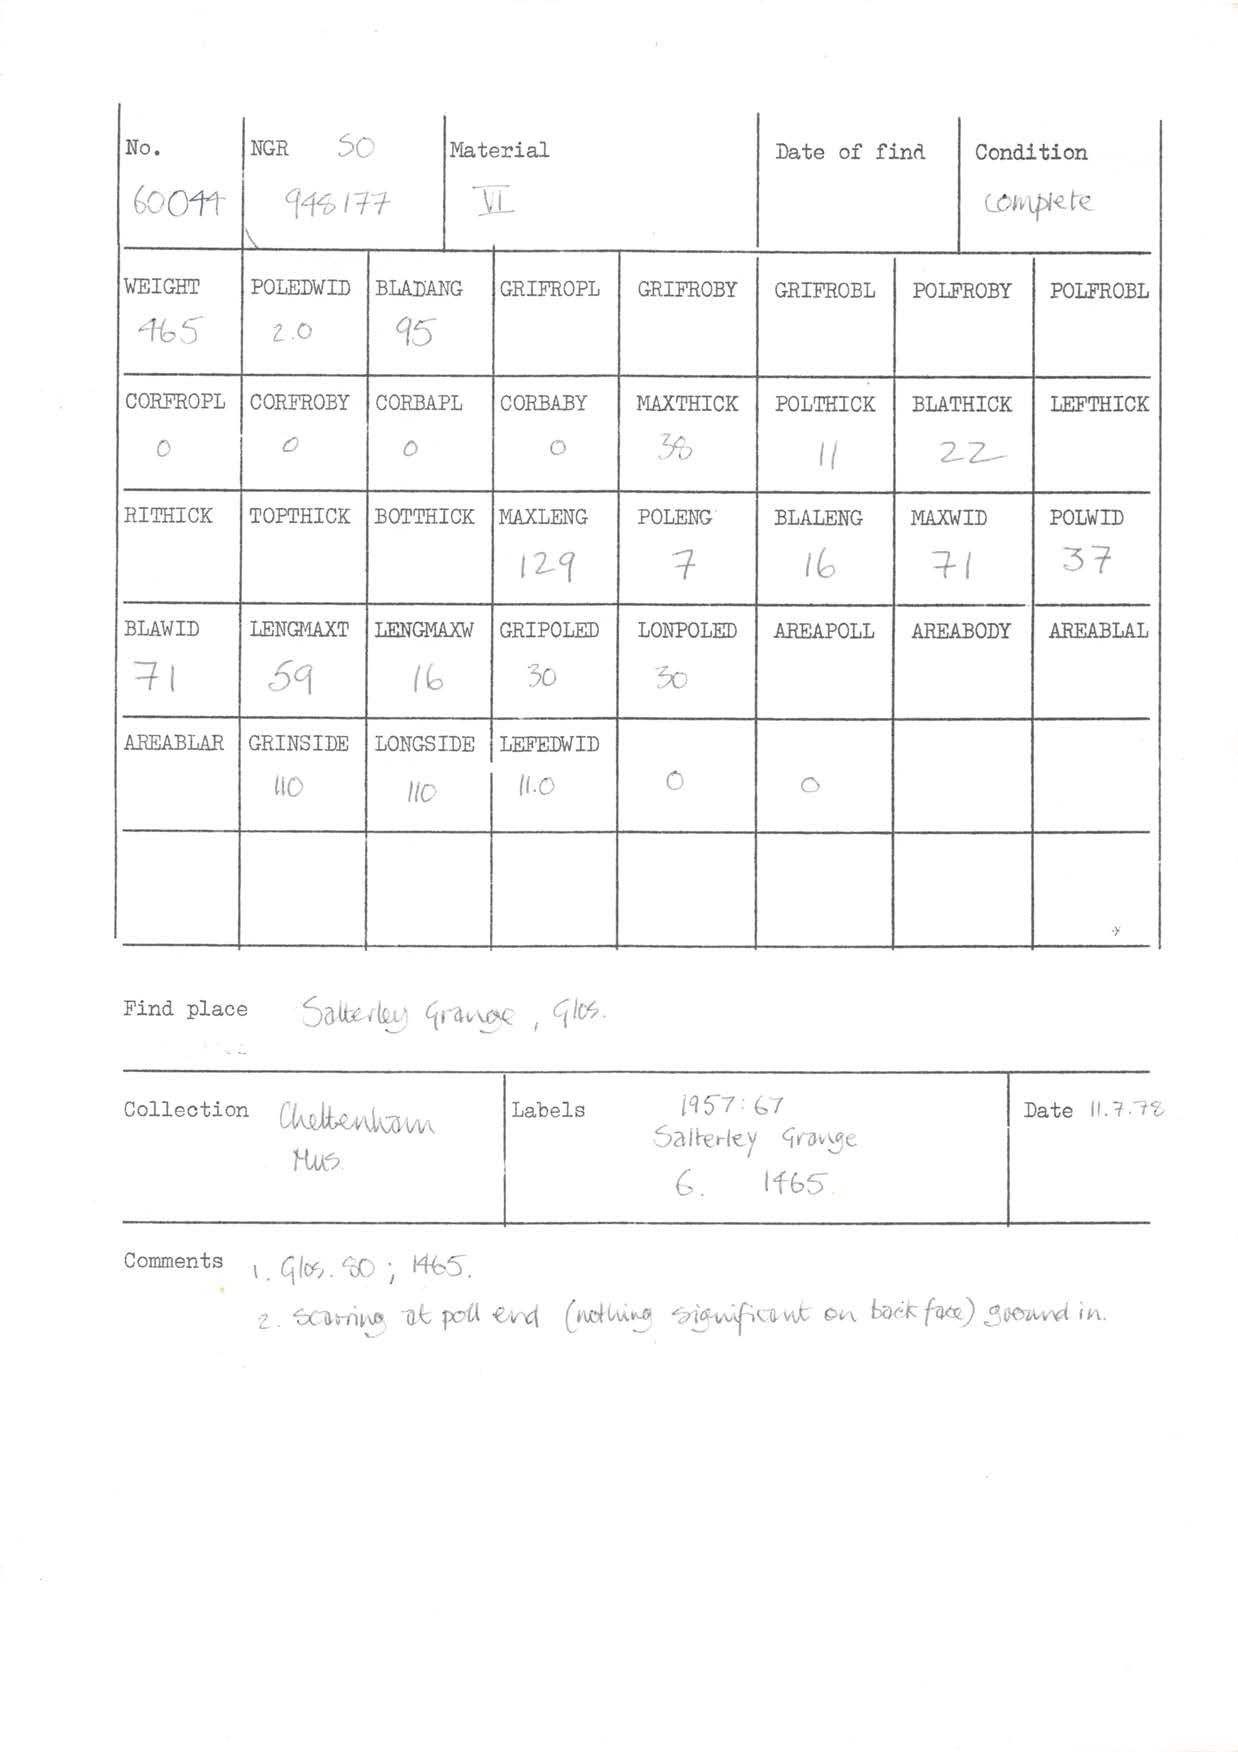 No. NGR SO Material Date of find Condition
60044 948177 VI complete
WEIGHT POLEDWID BLADANG GRIFROPL GRIFROBY GRIFROBL POLFROBY POLFROBL
465 2.0 95
CORFROPL CORFROBY CORBAPL CORBABY MAXTHICK POLTHICK BLATHICK LEFTHICK
0 0 0 0 38 11 22
RITHICK TOPTHICK BOTTHICK MAXLENG POLENG BLALENG MAXWID POLWID
129 7 16 71 37
BLAWID LENGMAXT LENGMAXW GRIPOLED LONPOLED AREAPOLL AREABODY AREABLAL
71 59 16 30 30
AREABLAR GRINSIDE LONGSIDE LEFEDWID
110 110 11.0 0 0
Find place Salterley Grange, Glos.
Collection Cheltenham Mus.
Labels 1957:67
Salterley Grange
6. 1465.
Date 11.7.78
Comments 1. Glos. 80; 1465.
2. scarring at poll end (nothing significant on back face) ground in.